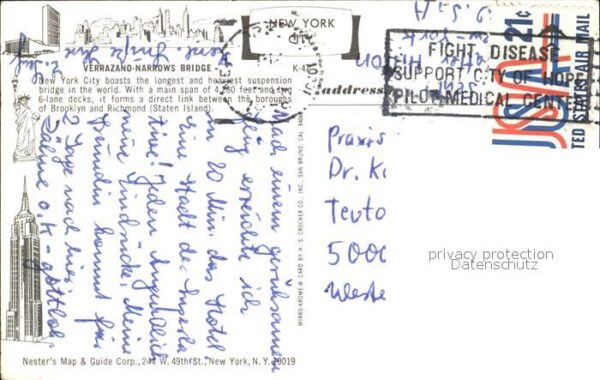 NEW YORK
CITY
VERRAZANO-NARROWS BRIDGE
K-4
New York City boasts the longest and heaviest suspension
bridge in the world. With a main span of 4,260 feet and two
6-lane decks, it forms a direct link between the boroughs
of Brooklyn and Richmond (Staten Island).
address
21¢
USA
UNITED STATES AIR MAIL
FIGHT DISEASE
SUPPORT CITY OF HOPE
PILOT MEDICAL CENTER
Nach einem geruhsamen
Flug erreichte ich
in 20 Min. das Hotel
eine Stadt der
Jeden Augenblick
neue Eindrücke. Meine
Freundin kommt für
2 Tage nach hier.
Zähne o.K. - gottlob.
Hilton
New-York
U.S.A
Praxis
Dr. K
Teuto
5000
Weste
MIRRO-KROME ® CARD BY H. S. CROCKER CO., INC., SAN BRUNO, CAL. 94066
Nester's Map & Guide Corp., 244 W. 49th St., New York, N.Y. 10019
privacy protection
Datenschutz